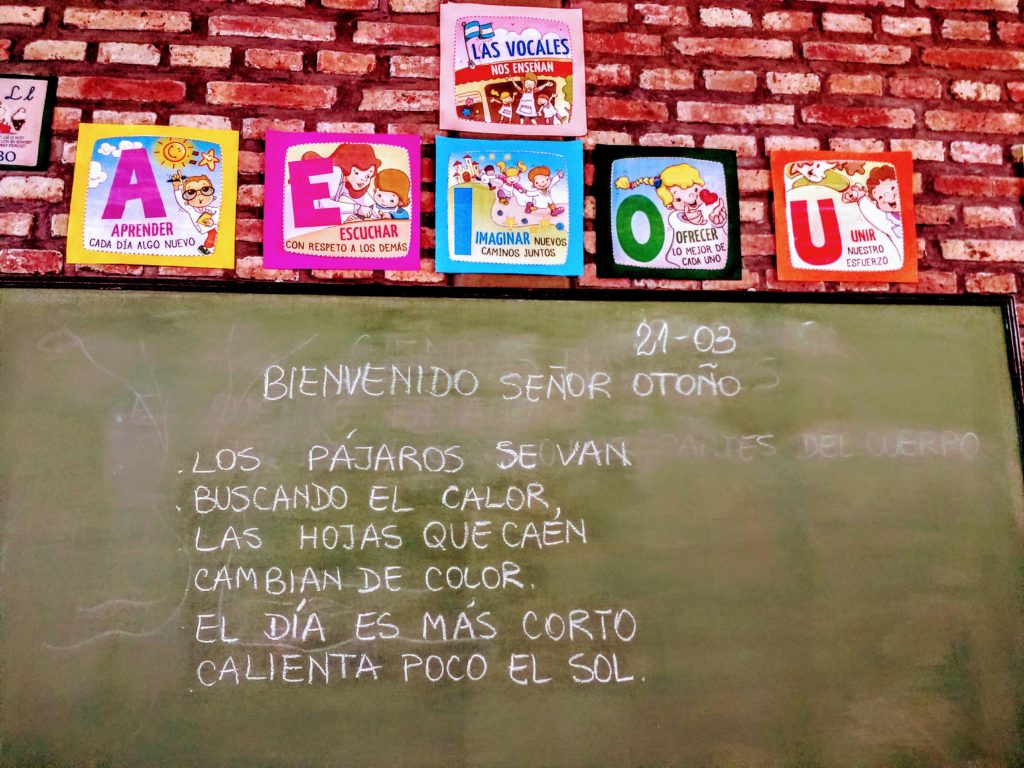 LAS VOCALES
NOS ENSEÑAN
Ll
BO
A
APRENDER
CADA DÍA ALGO NUEVO
E
ESCUCHAR
CON RESPETO A LOS DEMÁS
I
IMAGINAR NUEVOS
CAMINOS JUNTOS
O
OFRECER
LO MEJOR DE
CADA UNO
U
UNIR
NUESTRO
ESFUERZO
21-03
BIENVENIDO SEÑOR OTOÑO
PARTES DEL CUERPO
.LOS PÁJAROS SE VAN
.BUSCANDO EL CALOR,
LAS HOJAS QUE CAEN
CAMBIAN DE COLOR.
EL DÍA ES MÁS CORTO
CALIENTA POCO EL SOL.